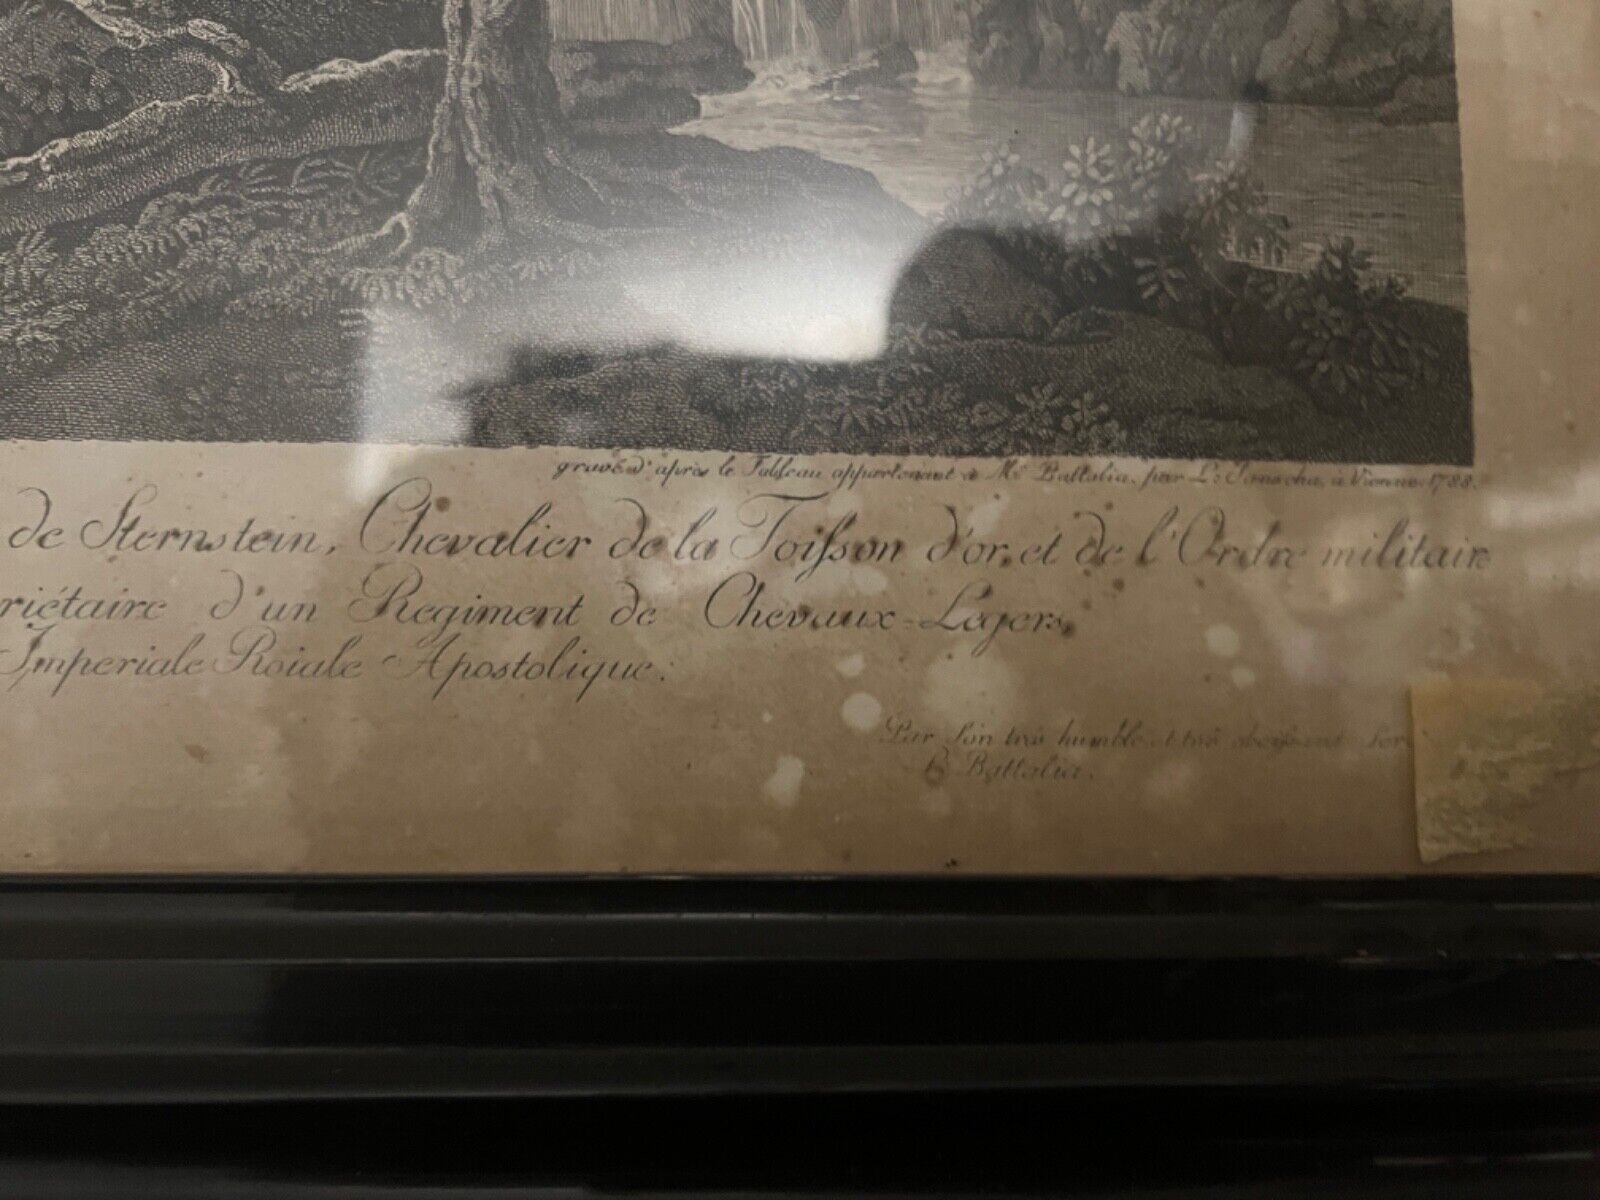 gravé d'après le Tableau appartenant à Mr. Battalia. par L: Janscha, à Vienne. 1788.
de Sternstein, Chevalier de la Toisson d'or, et de l'Ordre militaire
riétaire d'un Regiment de Chevaux-Legers,
Imperiale Roiale Apostolique.
Par son très humble et très obeissant Ser
B Battalia.